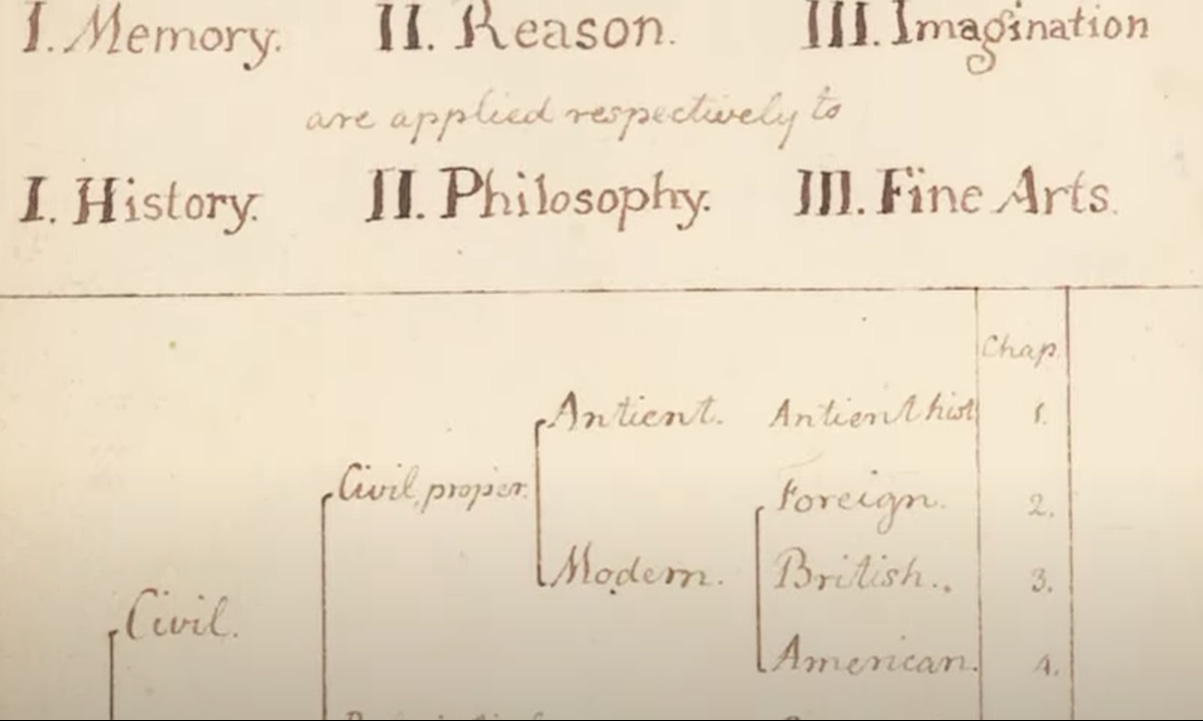 I. Memory. II. Reason. III. Imagination
are applied respectively to
I. History. II. Philosophy. III. Fine Arts.
Chap.
Antient. Antient hist 1.
Civil, proper.
Foreign. 2.
Modern. British. 3.
Civil.
American. 4.